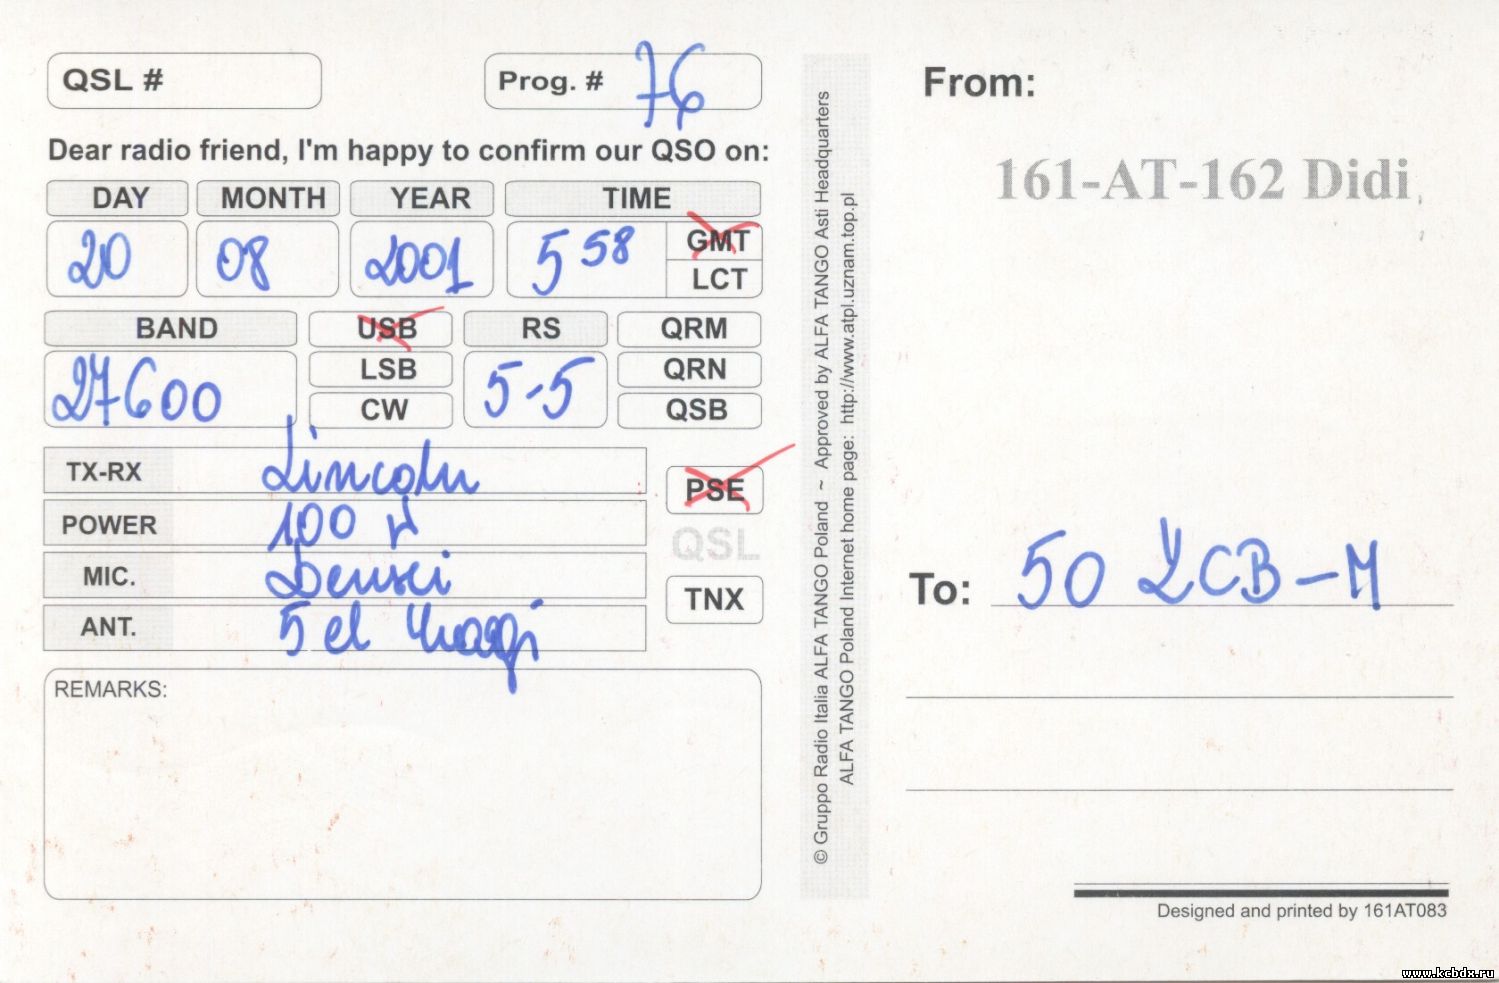 QSL #
Prog. # 76
Dear radio friend, I'm happy to confirm our QSO on:
DAY MONTH YEAR TIME
20 08 2001 5 58 GMT
LCT
BAND USB RS QRM
27600 LSB 5-5 QRN
CW QSB
TX-RX Lincoln
POWER 100 W
MIC. Densei
ANT. 5 el Yaagi
PSE
QSL
TNX
REMARKS:
© Gruppo Radio Italia ALFA TANGO Poland ~ Approved by ALFA TANGO Asti Headquarters
ALFA TANGO Poland Internet home page: http://www.atpl.uznam.top.pl
From:
161-AT-162 Didi
To: 50 ZCB-M
Designed and printed by 161AT083
www.kcbdx.ru